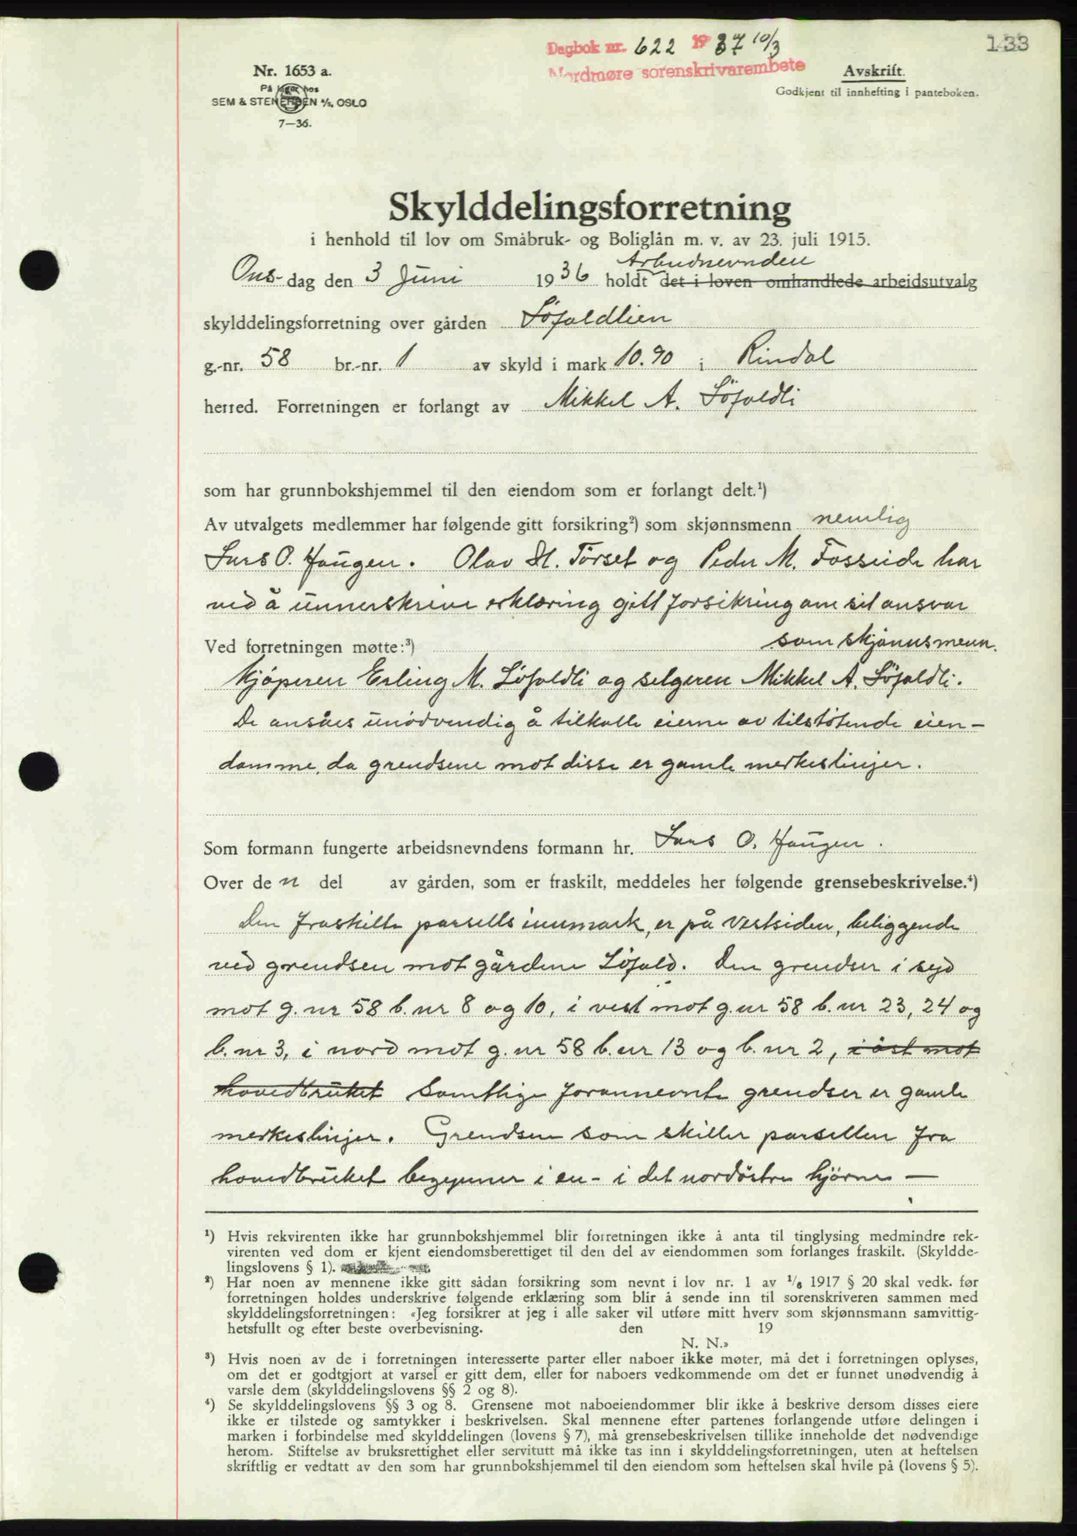 Dagbok nr. 622 1937 10/3
Nordmøre sorenskrivarembete
133
Nr. 1653 a.
På lager hos
SEM & STENERSEN A/S, OSLO
7—36.
Avskrift.
Godkjent til innhefting i panteboken.
Skylddelingsforretning
i henhold til lov om Småbruk- og Boliglån m. v. av 23. juli 1915.
Arbeidsnevnden
Ons-dag den 3 Juni 1936 holdt det i loven omhandlede arbeidsutvalg
skylddelingsforretning over gården Löfaldlien
g.-nr. 58 br.-nr. 1 av skyld i mark 10.90 i Rindal
herred. Forretningen er forlangt av Mikkel A. Löfaldli
som har grunnbokshjemmel til den eiendom som er forlangt delt.¹)
Av utvalgets medlemmer har følgende gitt forsikring²) som skjønnsmenn nemlig
Lars O. Haugen. Olav H. Törset og Peder M. Fosseide har
ved å unnerskrive erklæring gitt forsikring om sit ansvar
Ved forretningen møtte:³) som skjönnsmenn.
Kjöperen Erling M. Löfaldli og selgeren Mikkel A. Löfaldli.
De ansåes unödvendig å tilkalle eierne av tilstötende eien-
domme, da grendsene mot disse er gamle merkeslinjer.
Som formann fungerte arbeidsnevndens formann hr. Lars O. Haugen.
Over den del av gården, som er fraskilt, meddeles her følgende grensebeskrivelse.⁴)
Den fraskilte parsells innmark, er på vestsiden, beliggende
ved grendsen mot gårdene Löfald. Den grendser i syd
mot g. nr 58 b. nr 8 og 10, i vest mot g. nr 58 b. nr 23, 24 og
b. nr 3, i nord mot g. nr 58 b. nr 13 og b. nr 2, i öst mot
hovedbruket Samtlige forannevnte grendser er gamle
merkeslinjer. Grendsen som skiller parsellen fra
hovedbruket begynner i en - i det nordöstre hjörne —
¹) Hvis rekvirenten ikke har grunnbokshjemmel blir forretningen ikke å anta til tinglysing medmindre rek-
virenten ved dom er kjent eiendomsberettiget til den del av eiendommen som forlanges fraskilt. (Skyldde-
lingslovens § 1).
²) Har noen av mennene ikke gitt sådan forsikring som nevnt i lov nr. 1 av 1/6 1917 § 20 skal vedk. før
forretningen holdes underskrive følgende erklæring som blir å sende inn til sorenskriveren sammen med
skylddelingsforretningen: «Jeg forsikrer at jeg i alle saker vil utføre mitt hverv som skjønnsmann samvittig-
hetsfullt og efter beste overbevisning. den 19
N. N.»
³) Hvis noen av de i forretningen interesserte parter eller naboer ikke møter, må det i forretningen oplyses,
om det er godtgjort at varsel er gitt dem, eller for naboers vedkommende om det er funnet unødvendig å
varsle dem (skylddelingslovens §§ 2 og 8).
⁴) Se skylddelingslovens §§ 3 og 8. Grensene mot naboeiendommer blir ikke å beskrive dersom disses eiere
ikke er tilstede og samtykker i beskrivelsen. Skal mennene efter partenes forlangende utføre delingen i
marken i forbindelse med skylddelingen (lovens § 7), må grensebeskrivelsen tillike inneholde det nødvendige
herom. Stiftelse av bruksrettighet eller servitutt må ikke tas inn i skylddelingsforretningen, uten at heftelsen
skriftlig er vedtatt av den som har grunnbokshjemmel til den eiendom som heftelsen skal hvile på (lovens § 5).